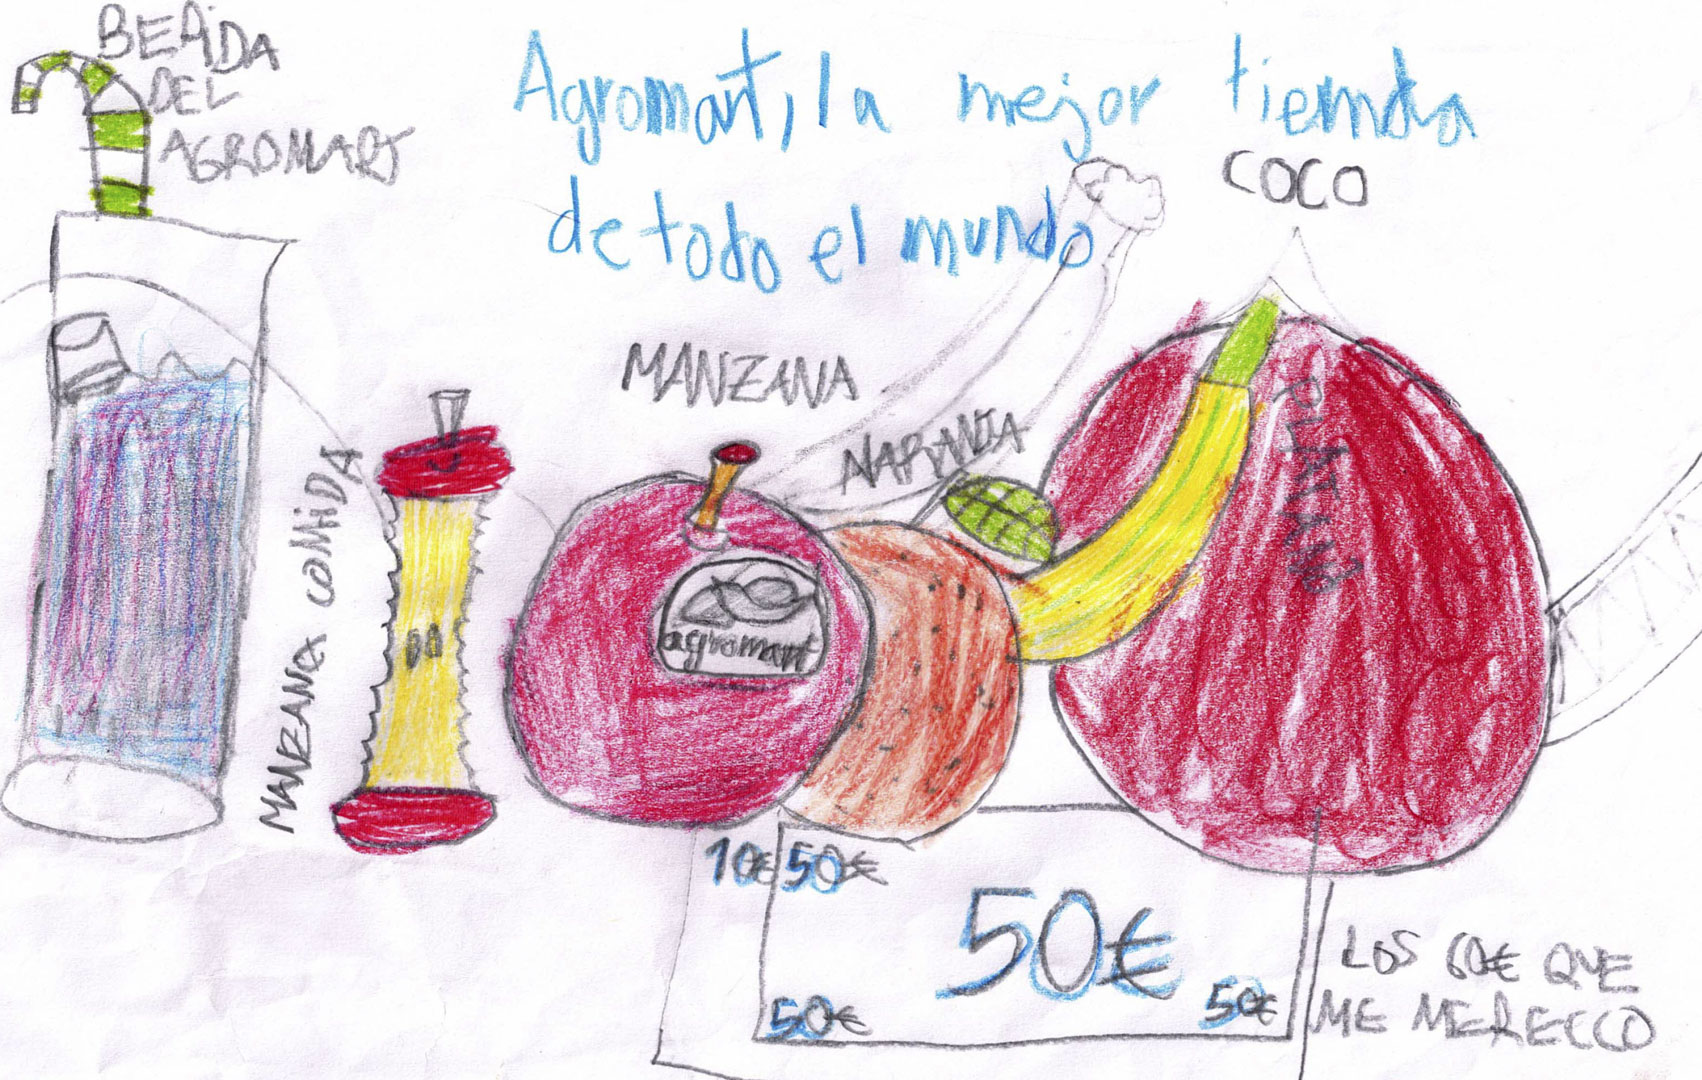 BEBIDA
DEL
AGROMART
Agromart, la mejor tienda
de todo el mundo
COCO
MANZANA
NARANJA
PLATANO
MANZANA COMIDA
agromart
10€ 50€
50€
50€ 50€
LOS 60€ QUE
ME MERECCO